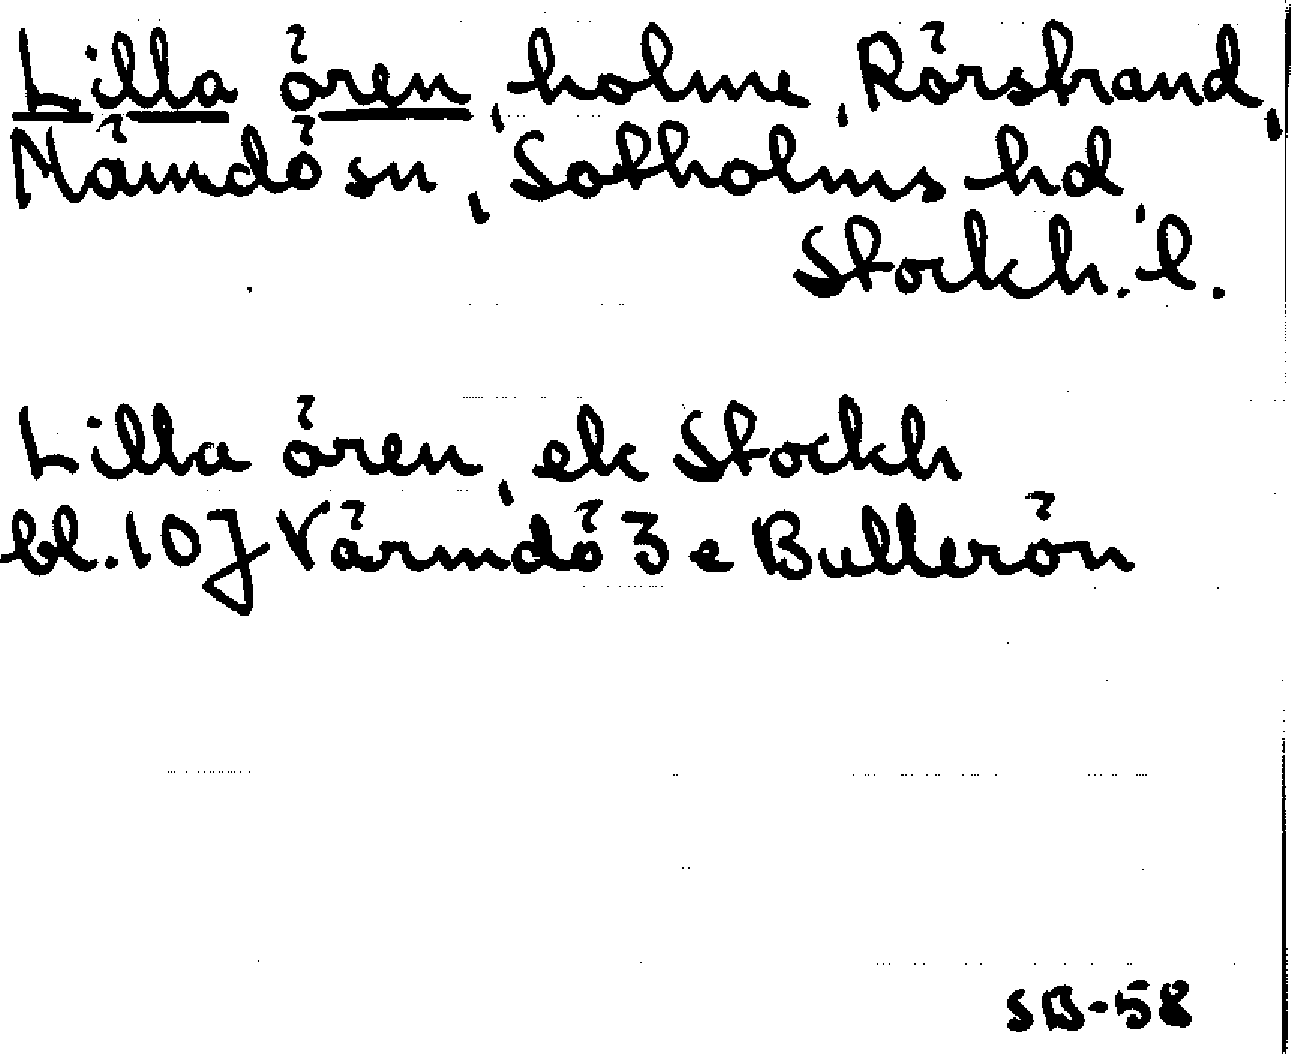 Lilla ören, holme, Rörstrand,
Nämdö sn, Sotholms hd,
Stockh. l.
Lilla ören, ek Stockh
bl. 10J Värmdö 3 e Bullerön
SB-58